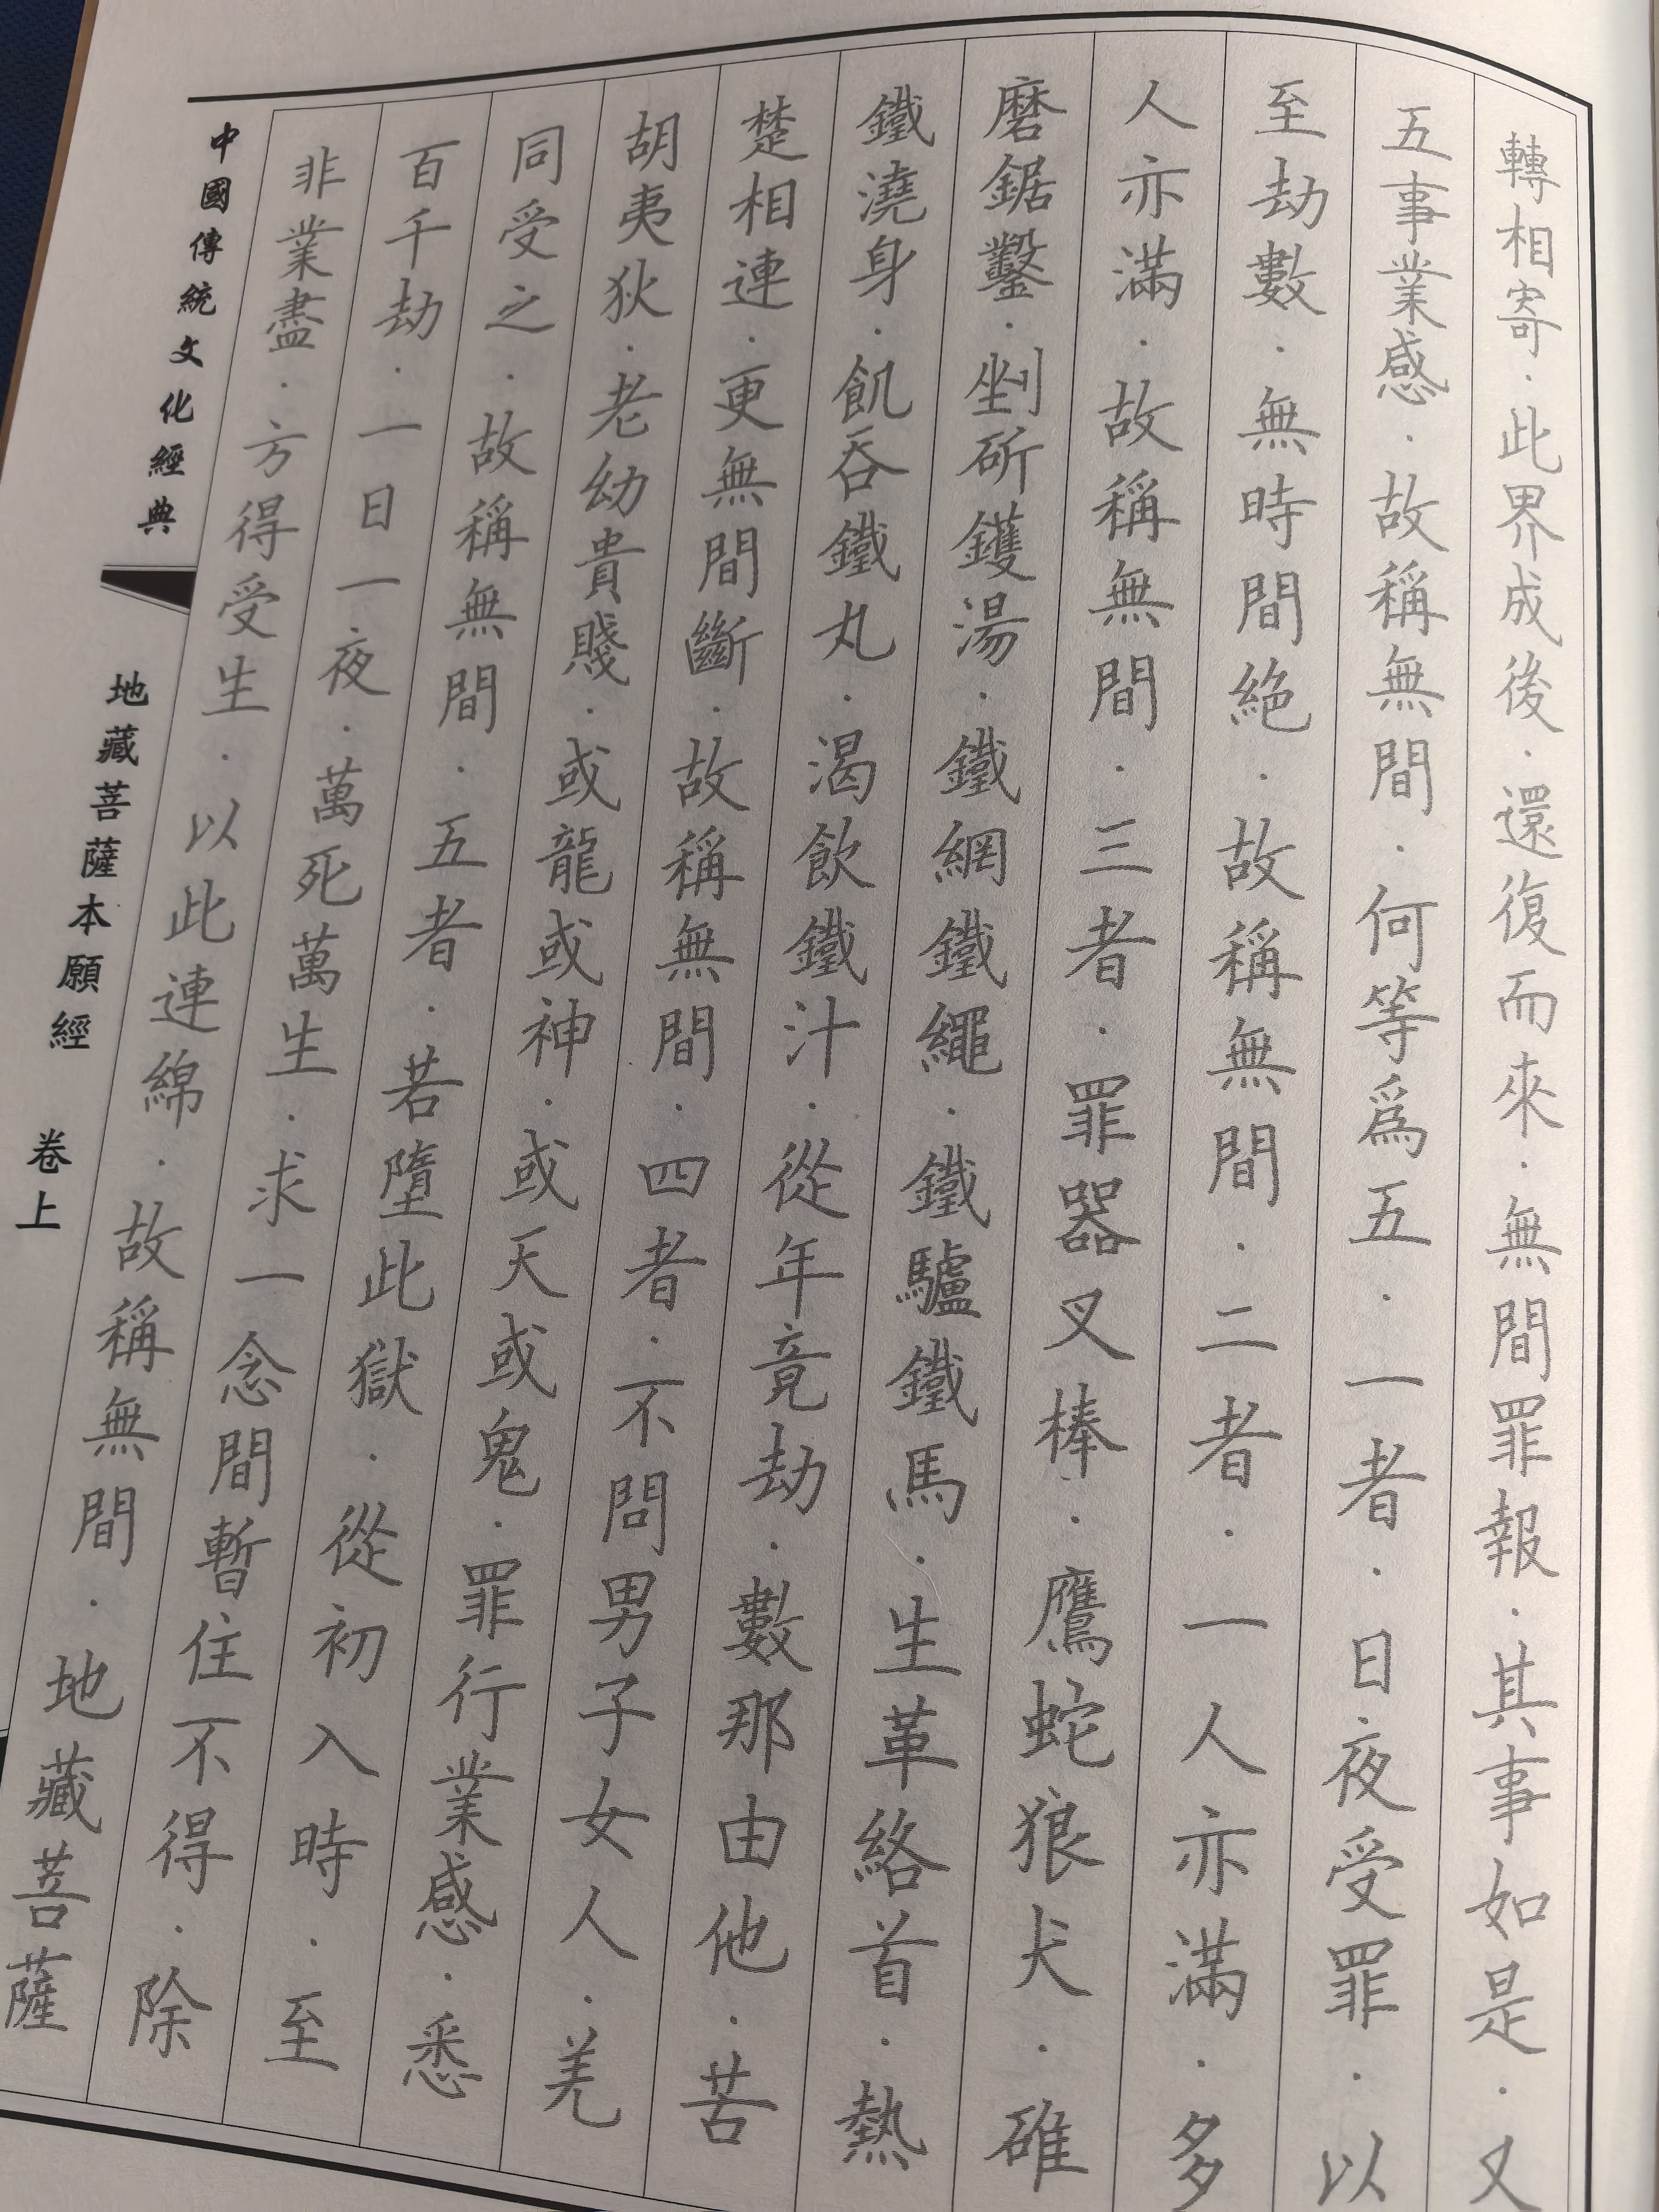 轉相寄．此界成後．還復而來．無間罪報．其事如是．又
五事業感．故稱無間．何等爲五．一者．日夜受罪．以
至劫數．無時間絕．故稱無間．二者．一人亦滿．多
人亦滿．故稱無間．三者．罪器叉棒．鷹蛇狼犬．碓
磨鋸鑿．剉斫鑊湯．鐵網鐵繩．鐵驢鐵馬．生革絡首．熱
鐵澆身．飢吞鐵丸．渴飲鐵汁．從年竟劫．數那由他．苦
楚相連．更無間斷．故稱無間．四者．不問男子女人．羌
胡夷狄．老幼貴賤．或龍或神．或天或鬼．罪行業感．悉
同受之．故稱無間．五者．若墮此獄．從初入時．至
百千劫．一日一夜．萬死萬生．求一念間暫住不得．除
非業盡．方得受生．以此連綿．故稱無間．地藏菩薩
中國傳統文化經典
地藏菩薩本願經 卷上